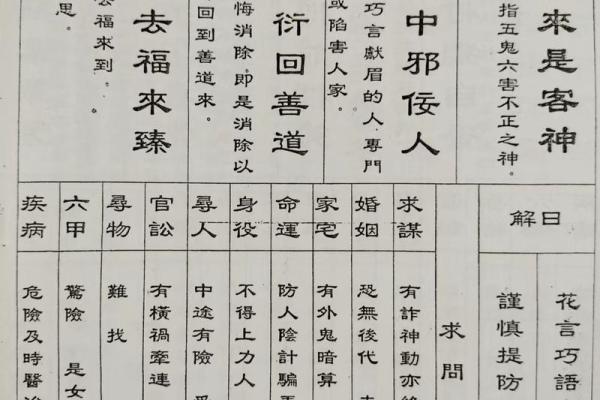 來是客神
指五鬼六害不正之神。
中邪佞人
巧言獻眉的人專門
或陷害人家。
衍回善道
悔消除。即是消除以
回到善道來。
去福來臻
福來到。
思。
日解
花言巧語
謹慎提防
求問
求謀
有詐神動亦
婚姻
恐無後代
家宅
有外鬼暗算
命運
防人陰計騙
身役
不得上力人
尋人
中途有險
官訟
有橫禍牽連
尋物
難找
六甲
驚險 是女
疾病
危險及時醫